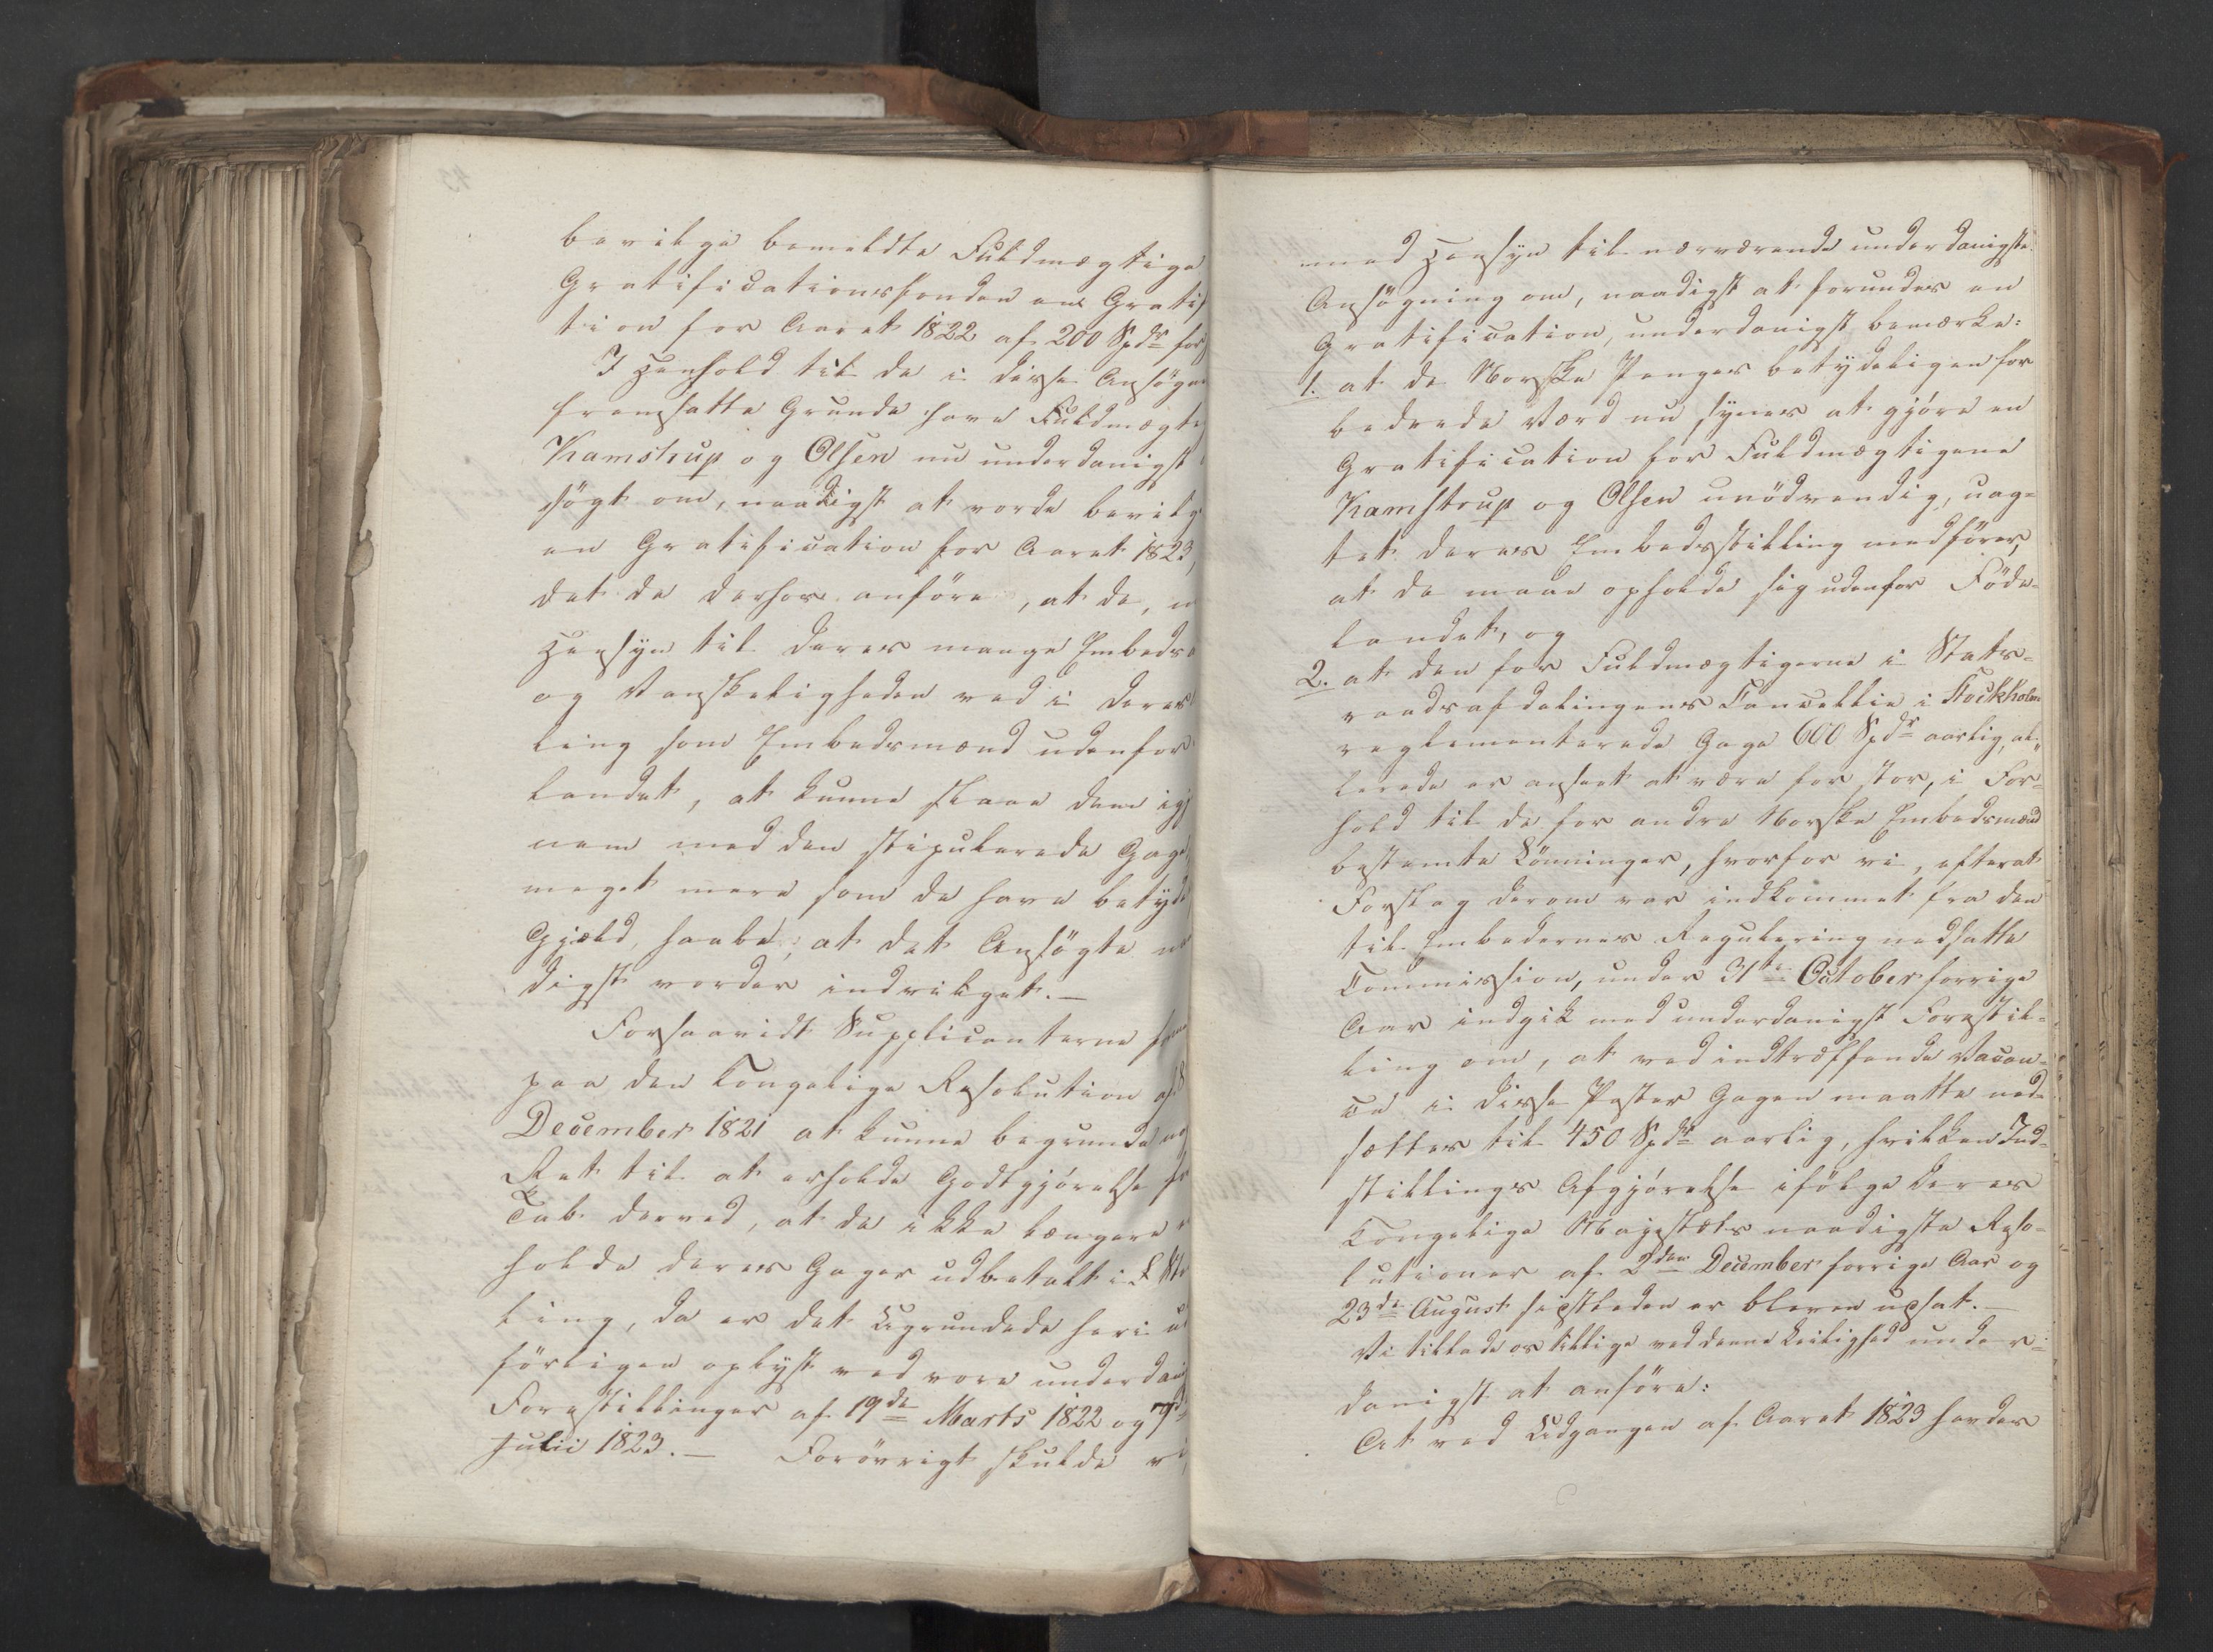 bevilge bemeldte Fuldmægtige
Gratificationsfonden en Gratif
tion for Aaret 1822 af 200 Spdr for
I Henhold til de i disse Ansögn
fremsatte Grunde have Fuldmægte
Kamstrup og Olsen nu underdanigst
sögt om, naadigst at vorde bevilg
en Gratification for Aaret 1823,
det de derhos anföre, at de, m
Hensyn til deres mange Embeds
og Vanskeligheden ved i deres
ling som Embedsmænd udenfor
landet, at kunne slaae dem igj
nem med den stipulerede Gage,
meget mere som de have betyde
Gjæld, haabe, at det Ansögte na
digst vorder indvilget. —
Forsaavidt Supplicanterne
paa den Kongelige Resolution af 8
December 1821 at kunne begrunde no
Ret til at erholde Godtgjörelse for
Tab derved, at de ikke længere
holde deres Gager udbetalt i £ Ster
ling, da er det Ugrundede heri ud
förligen oplyst ved vore underdani
Forestillinger af 19de Marts 1822 og 7d
Julii 1823. — Forövrigt skulde vi,
med Hensyn til nærværende underdanigste
Ansögning om, naadigst at forundes en
Gratification, underdanigst bemærke:
1. at de Norske Penges betydeligen for
bedrede Værd nu synes at gjöre en
Gratification for Fuldmægtigene
Kamstrup og Olsen unödvendig, uag=
tet deres Embedsstilling medförer,
at de maae opholde sig udenfor Föde=
landet, og
2. at den for Fuldmægtigerne i Stats=
raadsafdelingens Cancellie i Stockholm
reglementerede Gage 600 Spdr aarlig, al=
lerede er anseet at være for stor, i For=
hold til de for andre Norske Embedsmænd
bestemte Lönninger, hvorfor vi, efterat
Forslag derom var indkommet fra den
til Embedernes Regulering nedsatte
Commission, under 31te October forrige
Aar indgik med underdanigst Forestil=
ling om, at ved indtræffende Vacan=
ce i disse Poster Gagen maatte ned=
sættes til 450 Spdr aarlig, hvilken Ind=
stillings Afgjörelse ifölge Deres
Kongelige Majestæts naadigste Reso=
lutioner af 2den December forrige Aar og
23de August sidstleden er bleven udsat. —
Vi tillade os tillige ved denne Leilighed under=
danigst at anföre:
At ved Udgangen af Aaret 1823 havdes